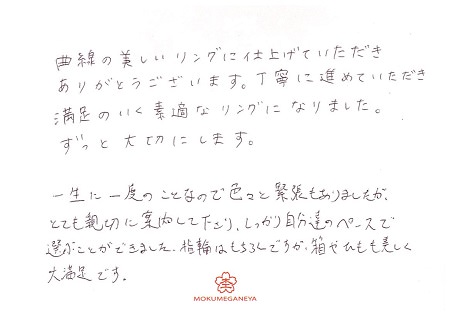 曲線の美しいリングに仕上げていただき
ありがとうございます。丁寧に進めていただき
満足のいく素適なリングになりました。
ずっと大切にします。
一生に一度のことなので色々と緊張もありましたが、
とても親切に案内して下さり、しっかり自分達のペースで
選ぶことができました。指輪はもちろんですが、箱やひもも美しく
大満足です。
MOKUMEGANEYA